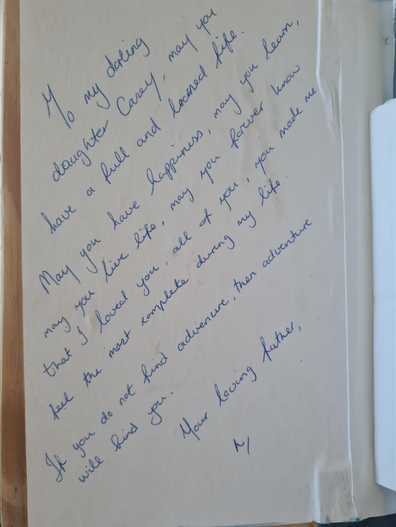 To my darling
daughter Casey, may you
have a full and learned life.
May you have happiness, may you learn,
may you live life, may you forever know
that I loved you, all of you, you made me
feel the most complete during my life.
If you do not find adventure, then adventure
will find you.
Your loving father,